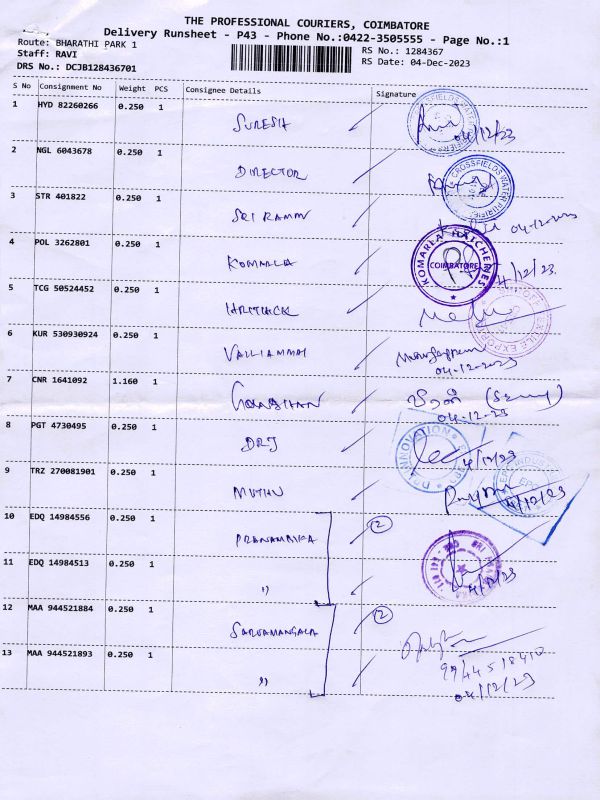 THE PROFESSIONAL COURIERS, COIMBATORE
Delivery Runsheet - P43 - Phone No.:0422-3505555 - Page No.:1
Route: BHARATHI PARK 1
Staff: RAVI
DRS No.: DCJB128436701
RS No.: 1284367
RS Date: 04-Dec-2023
S No Consignment No Weight PCS Consignee Details Signature
1 HYD 82260266 0.250 1 SURESH 04/12/23
2 NGL 6043678 0.250 1 DIRECTOR CROSSFIELDS WATER PURIFIERS
3 STR 401822 0.250 1 SRI RAMM 04-12-2023
4 POL 3262801 0.250 1 KOMARLA KOMARLA HATCHERIES COIMBATORE 4/12/23
5 TCG 50524452 0.250 1 HRITHICK
6 KUR 530930924 0.250 1 VALLIAMMAI 04-12-2023
7 CNR 1641092 1.160 1 04-12-23
8 PGT 4730495 0.250 1 DRJ DRJ INNOVATION 4/12/23
9 TRZ 270081901 0.250 1 MUTHU 4/12/23
10 EDQ 14984556 0.250 1 PRANAMBIKA 2
11 EDQ 14984513 0.250 1 " 4/12/23
12 MAA 944521884 0.250 1 SARVAMANGALA 2
13 MAA 944521893 0.250 1 "
04/12/23